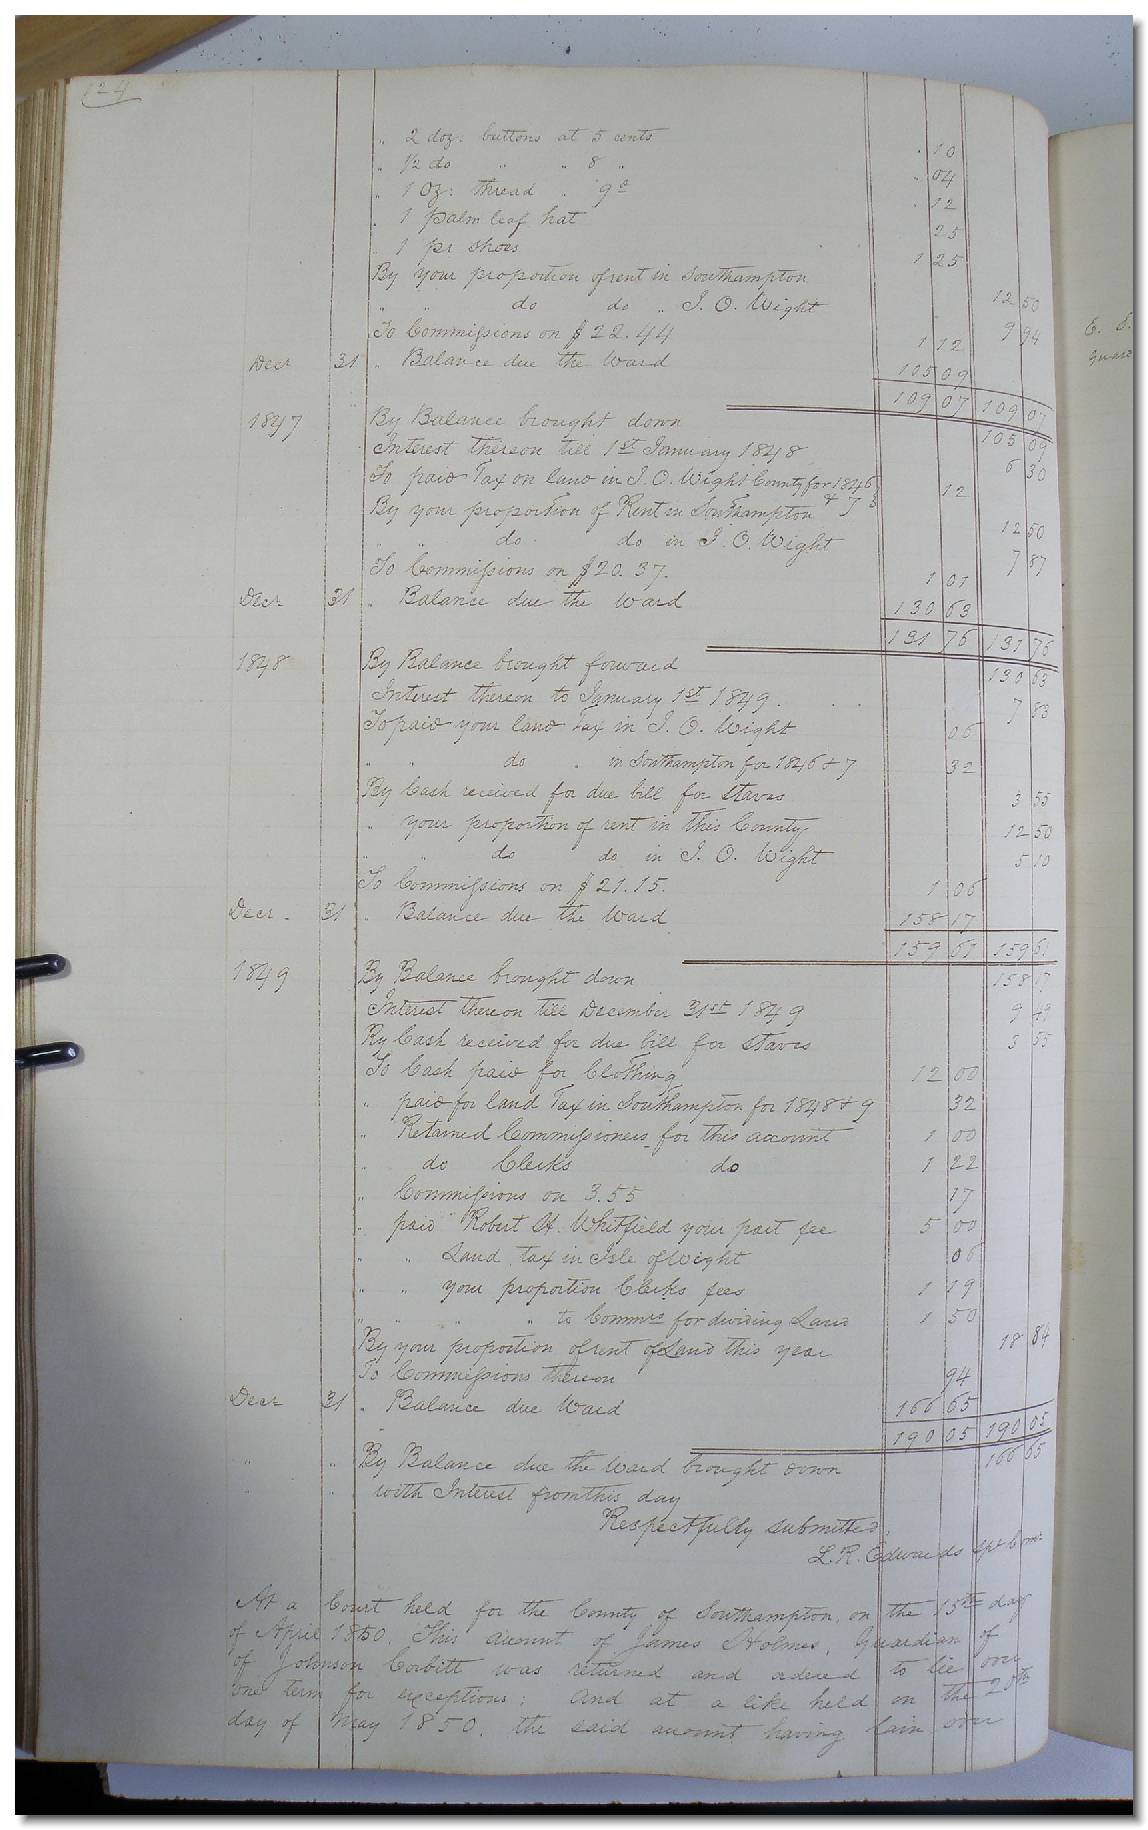 124
" 2 doz: buttons at 5 cents . 10
" 1/2 do " " 8 " . 04
" 1 Oz: thread . 9d . 12
. 1 palm leaf hat 25
1 pr shoes 1 25
By your proportion of rent in Southampton 12 50
" " do do " I. O. Wight 9 94
To Commissions on $22.44 1 12
Decr 31 " Balance due the Ward 105 09
109 07 109 07
1847 By Balance brought down 105 09
Interest thereon till 1st January 1848 6 30
To paid Tax on land in I. O. Wight County for 1846 & 7 12
By your proportion of Rent in Southampton 12 50
" " do do in I. O. Wight 7 87
To Commissions on $20.37. 1 01
Decr 31 " Balance due the Ward 130 63
131 76 131 76
1848 By Balance brought forward 130 63
Interest thereon to January 1st 1849 . . . 7 83
To paid your land Tax in I. O. Wight 06
" " do " in Southampton for 1846 & 7 32
By Cash received for due bill for staves 3 55
" your proportion of rent in this County 12 50
" " do do in I. O. Wight 5 10
To Commissions on $21.15. 1 06
Decr. 31 " Balance due the Ward 158 17
159 61 159 61
1849 By Balance brought down 158 17
Interest thereon till December 31st 1849 9 49
By Cash received for due bill for staves 3 55
To Cash paid for Clothing 12 00
" paid for land Tax in Southampton for 1848 & 9 32
" Retained Commissioners for this account 1 00
" do Clerks do 1 22
" Commissions on 3.55 17
" paid Robert H. Whitfield your part fee 5 00
" " Land tax in Isle of Wight 06
" " your proportion Clerks fees 1 19
" " " " to Commrs for dividing Land 1 50
By your proportion of rent of Land this year 18 84
To Commissions thereon 94
Decr 31 " Balance due Ward 166 65
190 05 190 05
" " By Balance due the Ward brought down 166 65
with Interest from this day
Respectfully submitted,
L. R. Edwards Spl Comr
At a Court held for the County of Southampton, on the 15th day
of April 1850. This account of James Holmes, Guardian of
of Johnson Corbitt was returned and ordered to lie over
one term for exceptions; And at a like held on the 20th
day of May 1850. the said account having lain over
E. E.